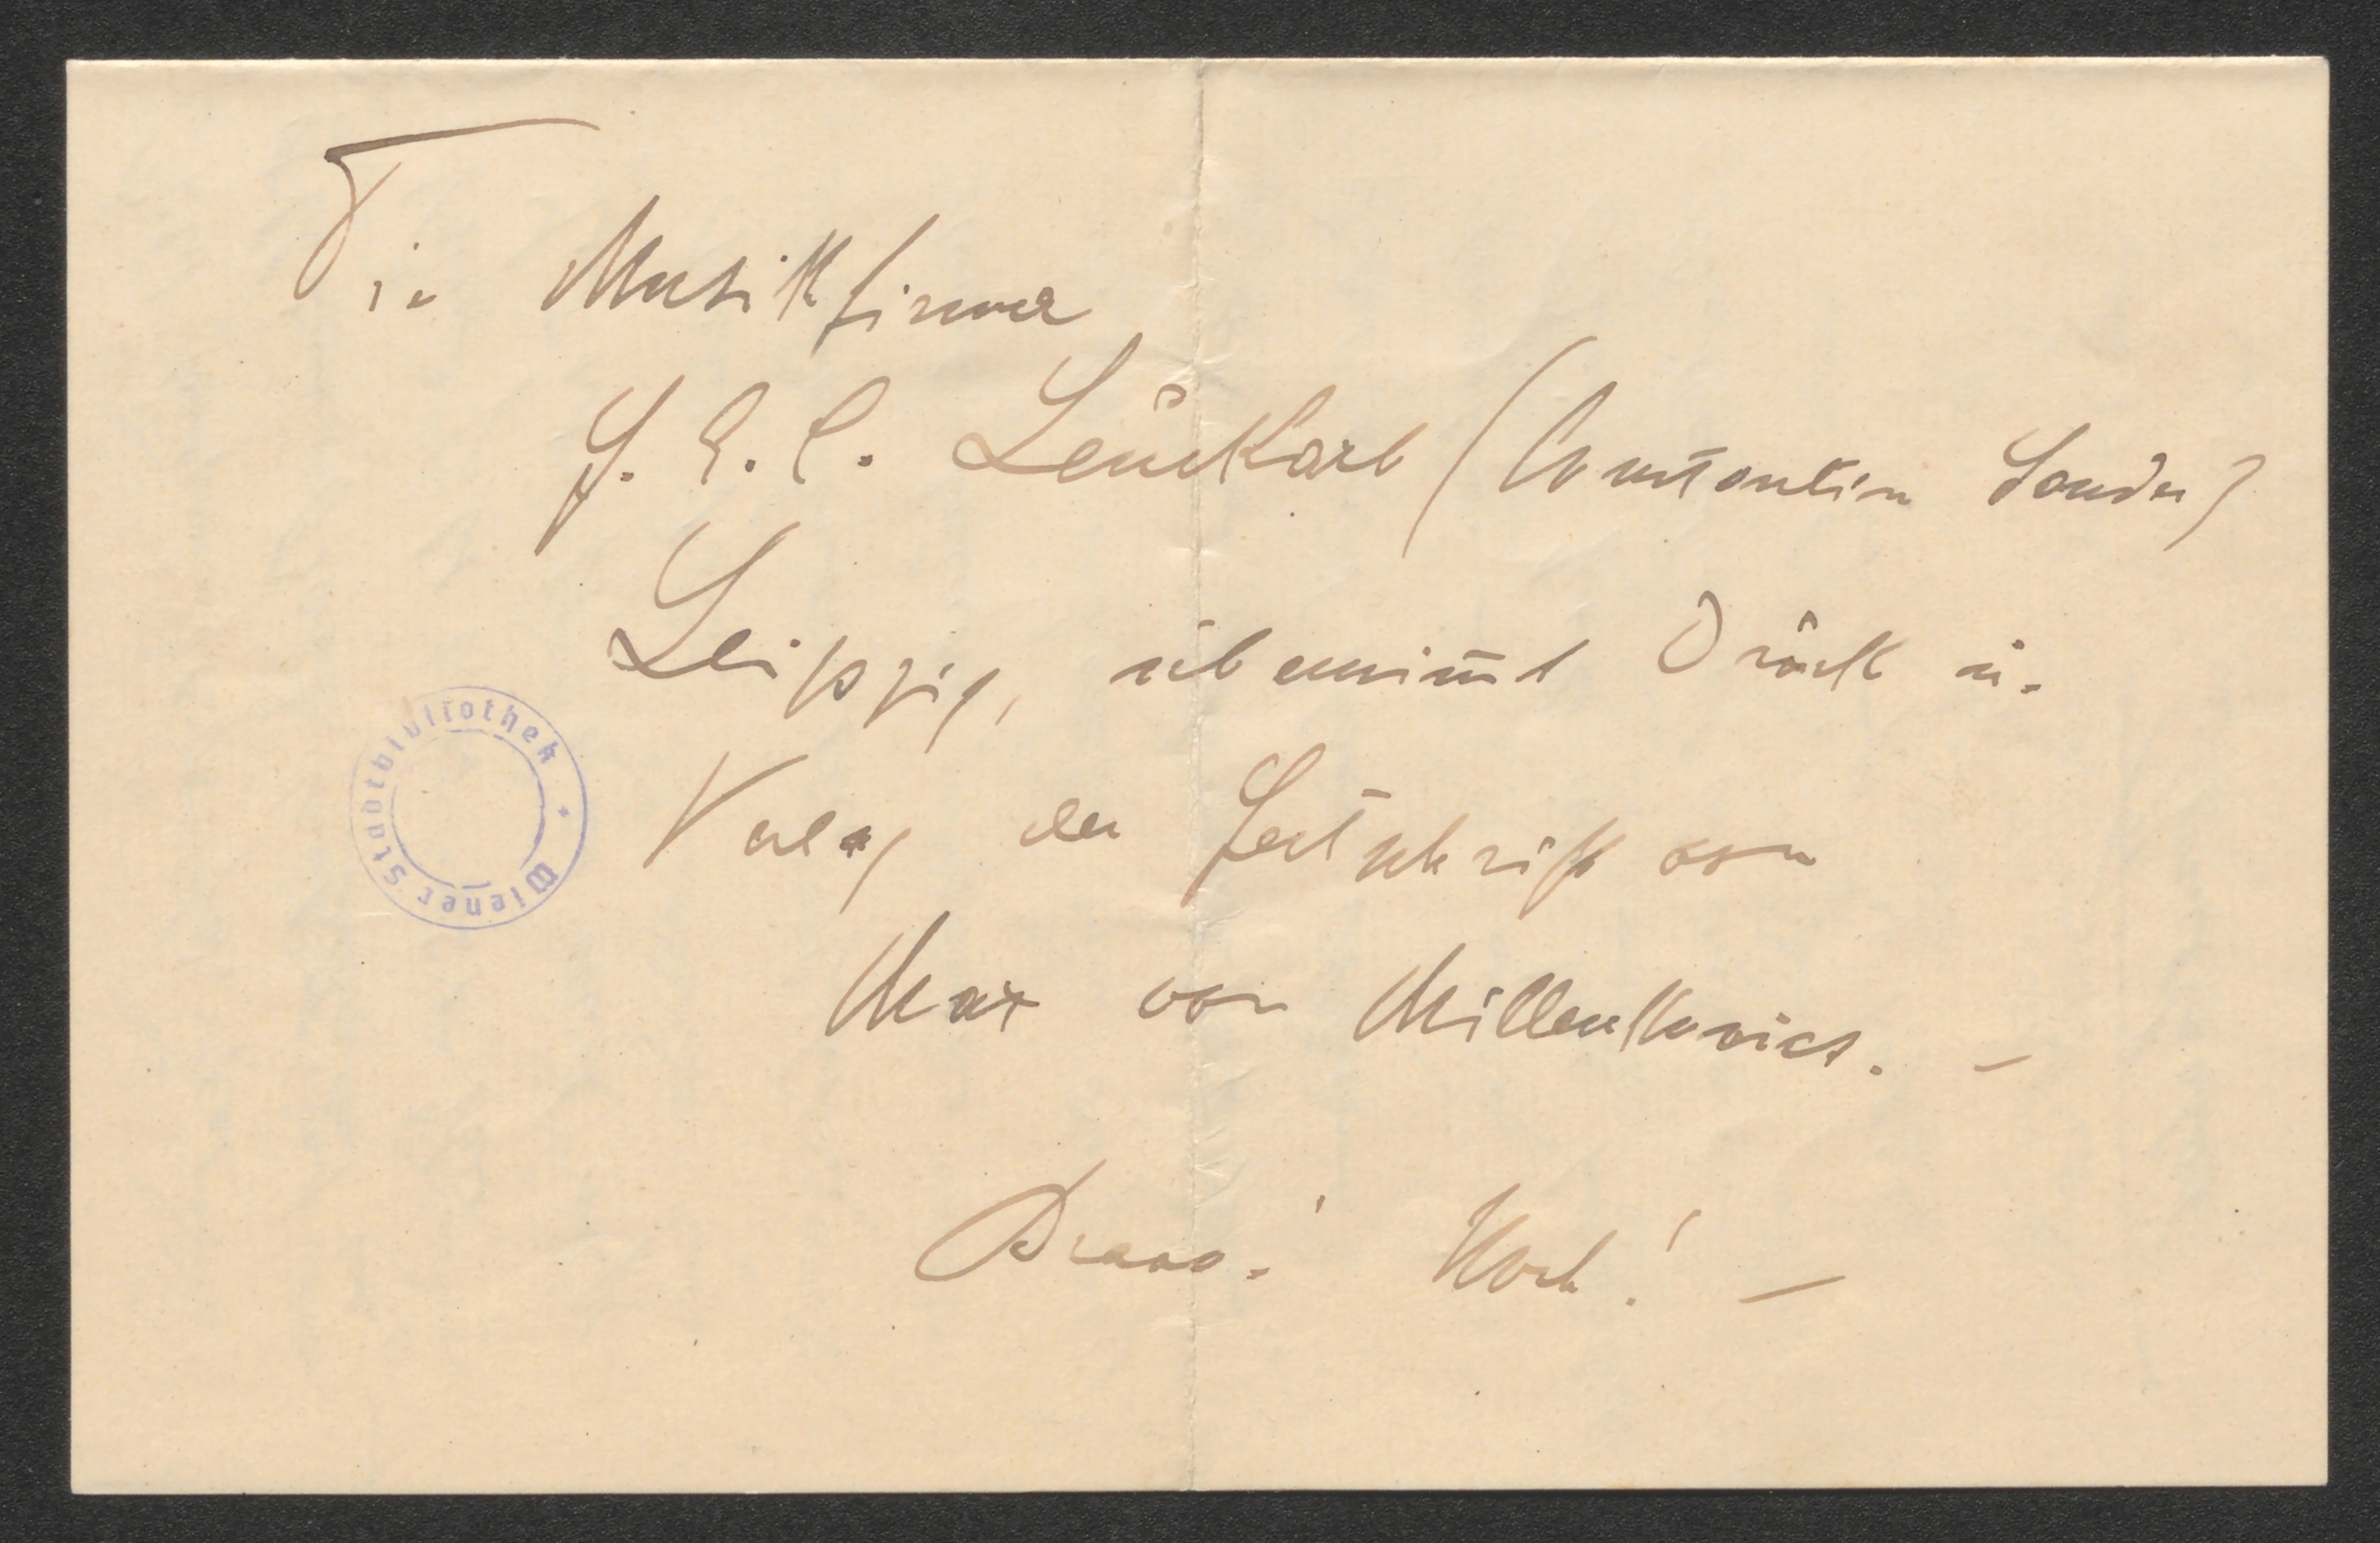 Die Musikfirma
F. E. C. Leuckart (Constantin Sander)
Leipzig, übernim̅t Druck u.
Verlag der Festschrift von
Wiener Stadtbibliothek
Max von Millenkovics. –
Bravo! Hoch! –